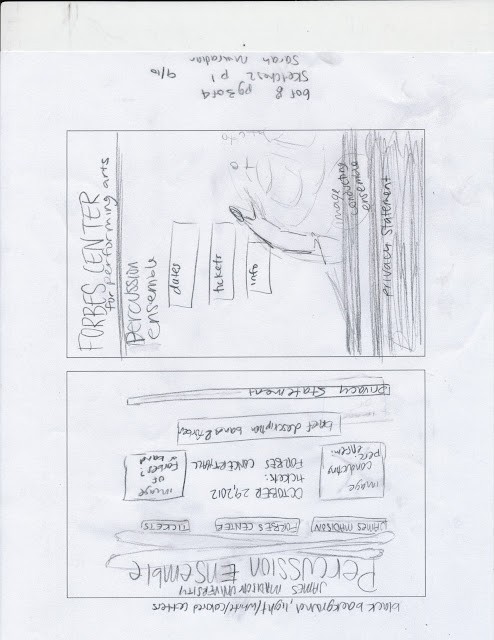 FORBES CENTER
for performing arts
percussion
ensemble
dates
tickets
info
image
conducting
ensemble
privacy statement
black background, light/white/colored letters
JAMES MADISON UNIVERSITY
PERCUSSION ENSEMBLE
JAMES MADISON
FORBES CENTER
TICKETS
image
conducting
perc.
ensem.
OCTOBER 29, 2012
tickets:
FORBES CONCERT HALL
image
of
Forbes?
or band
brief description
Privacy Statement
pg 3 of 4
sketches2 p1
9/10
Sarah